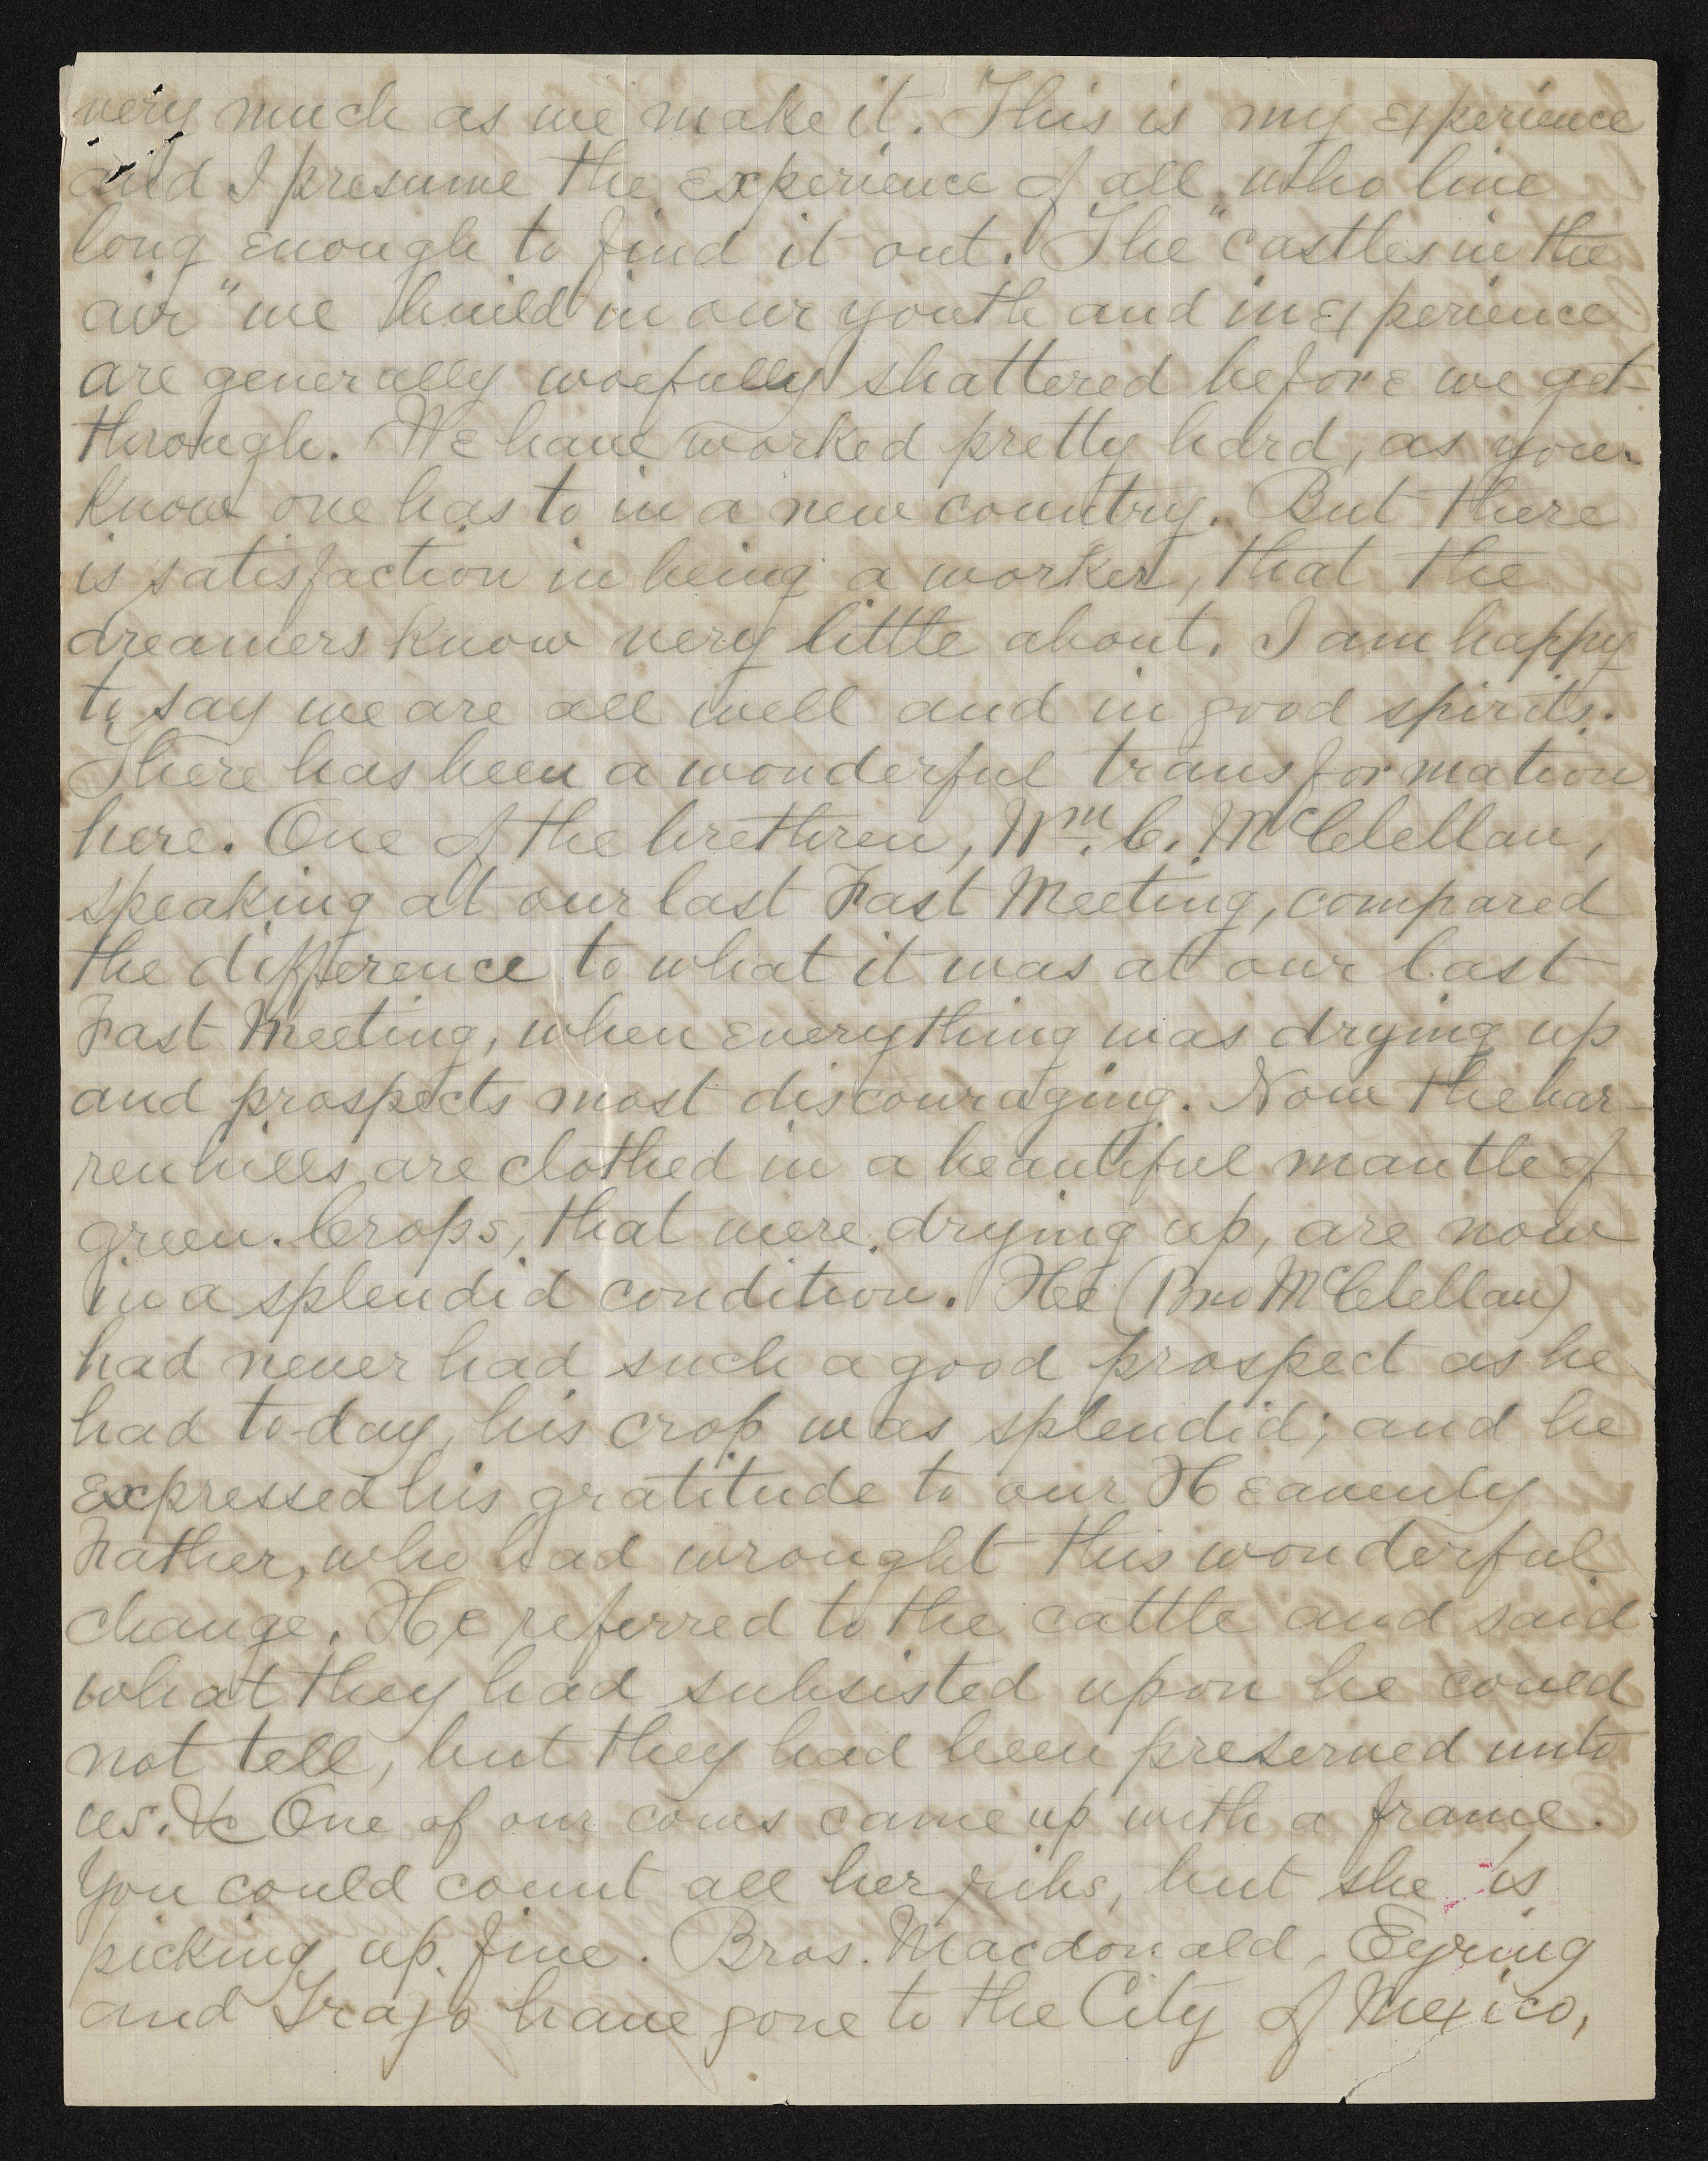 very much as we make it. This is my experience
and I presume the experience of all who live
long enough to find it out. The "castles in the
air" we build in our youth and inexperience
are generally woefully shattered before we get
through. We have worked pretty hard, as you
know one has to in a new country. But there
is satisfaction in being a worker, that the
dreamers know very little about. I am happy
to say we are all well and in good spirits.
There has been a wonderful transformation
here. One of the brethren, Wm. C. McClellan,
speaking at our last Fast Meeting, compared
the difference to what it was at our last
Fast Meeting, when everything was drying up
and prospects most discouraging. Now the bar-
ren hills are clothed in a beautiful mantle of
green. Crops, that were drying up, are now
in a splendid condition. He (Bro McClellan)
had never had such a good prospect as he
had to-day, his crop was splendid; and he
expressed his gratitude to our Heavenly
Father, who had wrought this wonderful
change. He referred to the cattle and said
what they had subsisted upon he could
not tell, but they had been preserved unto
us. &c One of our cows came up with a frame.
You could count all her ribs, but she is
picking up fine. Bros. Macdonald, Eyring
and Trajo have gone to the City of Mexico,